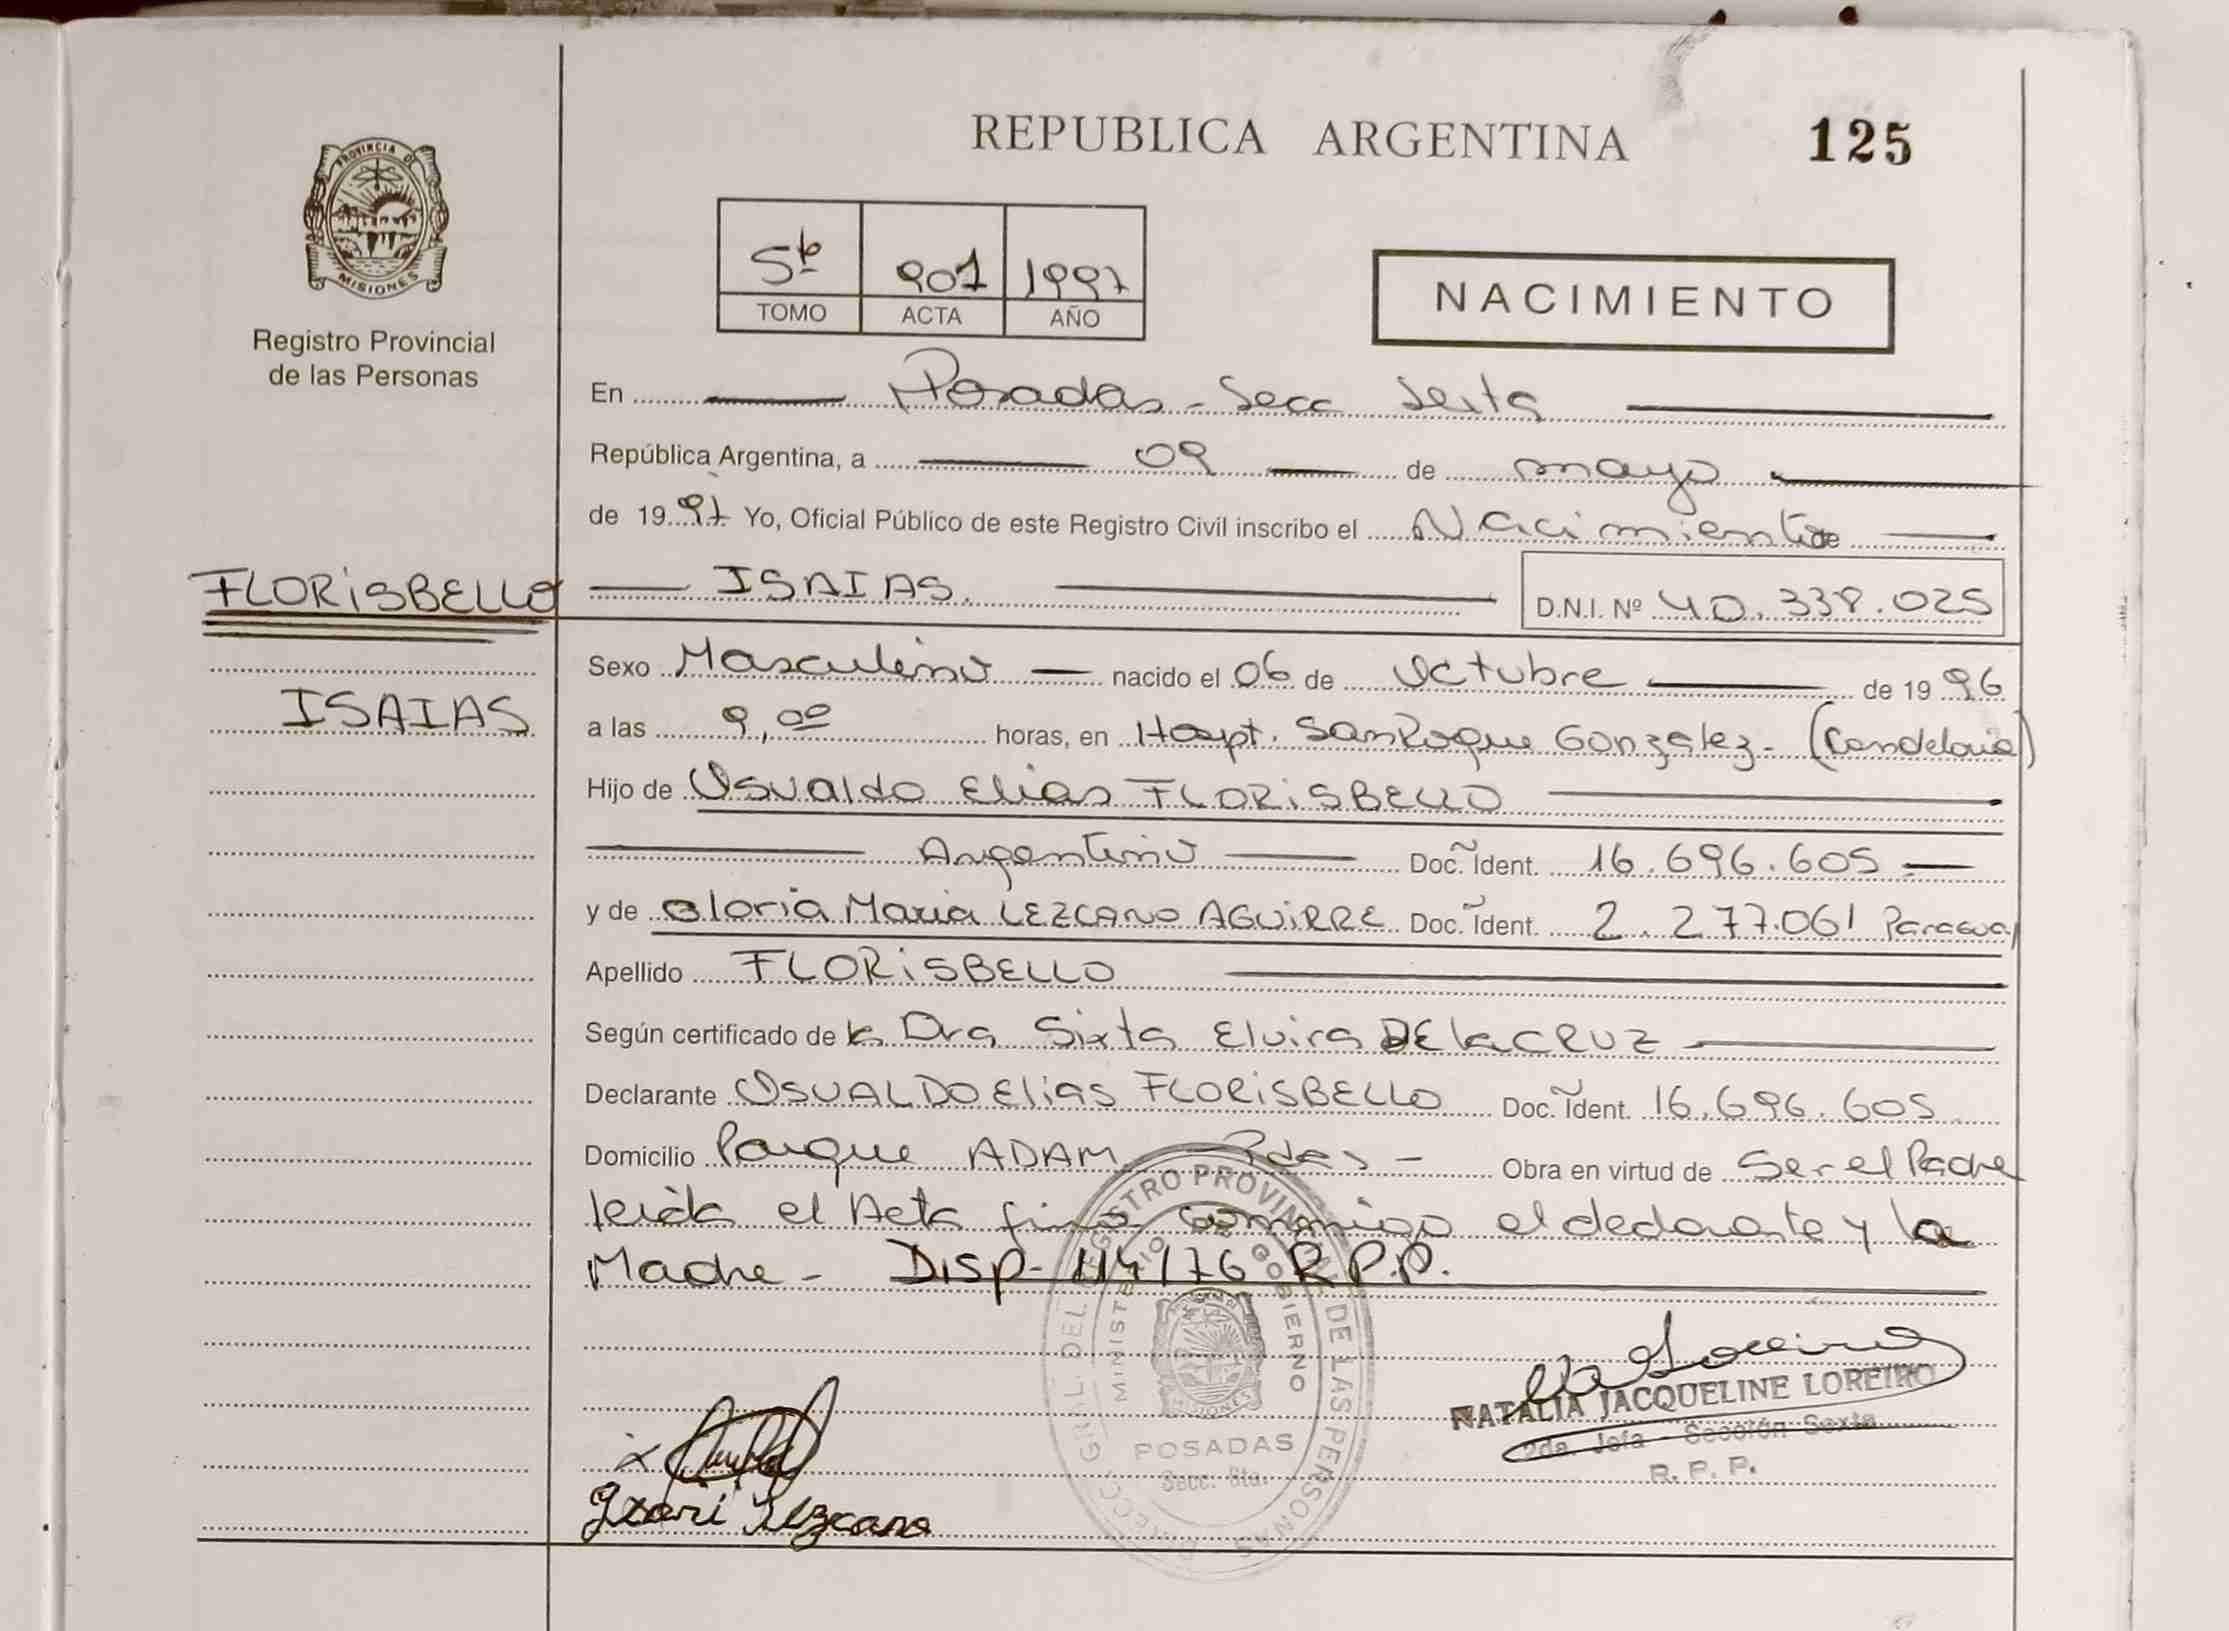 REPUBLICA ARGENTINA
125
PROVINCIA DE MISIONES
Registro Provincial
de las Personas
5to 901 1997
TOMO ACTA AÑO
NACIMIENTO
En Posadas - Secc Sexta
República Argentina, a 09 de mayo
de 1997 Yo, Oficial Público de este Registro Civil inscribo el Nacimiento de
FLORISBELLO
ISAIAS. D.N.I. Nº 40.338.025
ISAIAS
Sexo Masculino nacido el 06 de Octubre de 1996
a las 9,00 horas, en Hospt. San Roque Gonzalez - (Candelaria)
Hijo de Osvaldo Elias FLORISBELLO
Argentino Doc. Ident. 16.696.605
y de Gloria Maria LEZCANO AGUIRRE Doc. Ident. 2.277.061 Paraguay
Apellido FLORISBELLO
Según certificado de la Dra Sixta Elvira DE la CRUZ
Declarante OSVALDO Elias FLORISBELLO Doc. Ident. 16.696.605
Domicilio Parque ADAM - Pdas - Obra en virtud de Ser el Padre
leida el Acta firma conmigo el declarante y la
Madre - Disp - 114/76 R.P.P.
DIRECC. GRAL. DEL REGISTRO PROVINCIAL DE LAS PERSONAS
MINISTERIO DE GOBIERNO
MISIONES
POSADAS
Secc. 6ta.
NATALIA JACQUELINE LOREIRO
2da. Jefa - Sección Sexta
R. P. P.
Lezcano